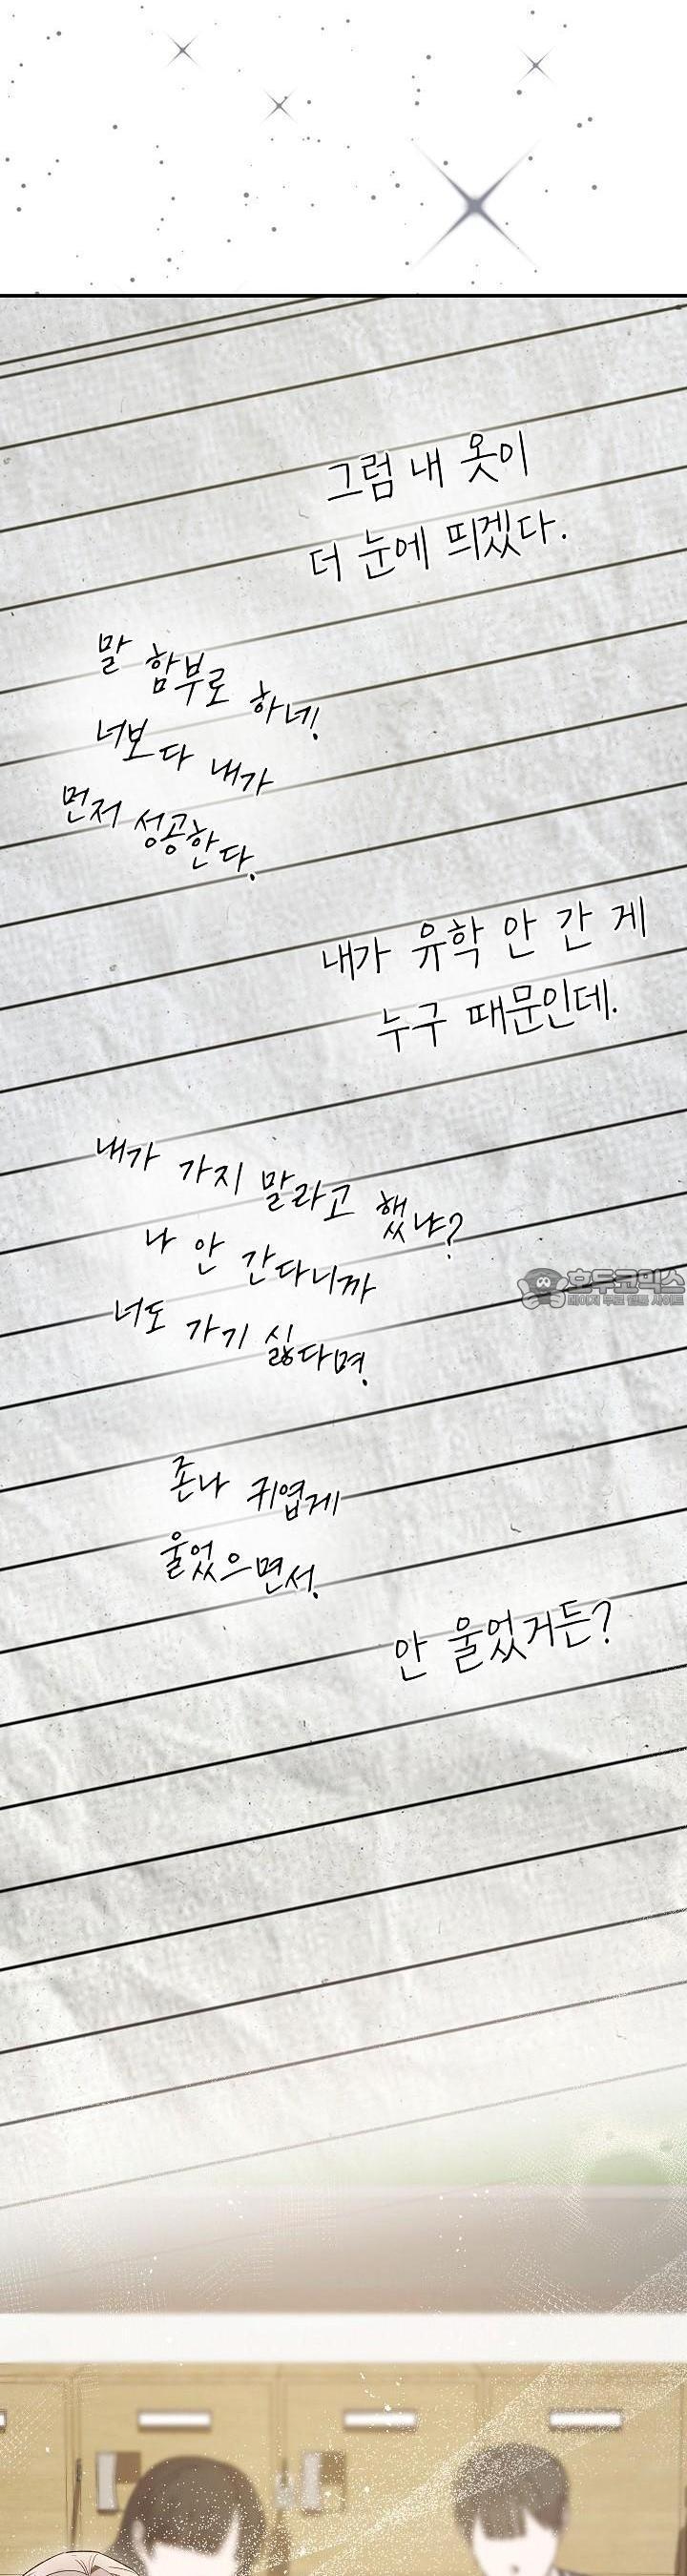 그럼 내 옷이
더 눈에 띄겠다.
말 함부로 하네!
너보다 내가
먼저 성공한다.
내가 유학 안 간 게
누구 때문인데.
내가 가지 말라고 했냐?
나 안 간다니까
너도 가기 싫다며.
호두코믹스
페이지 무료 웹툰 사이트
존나 귀엽게
울었으면서.
안 울었거든?